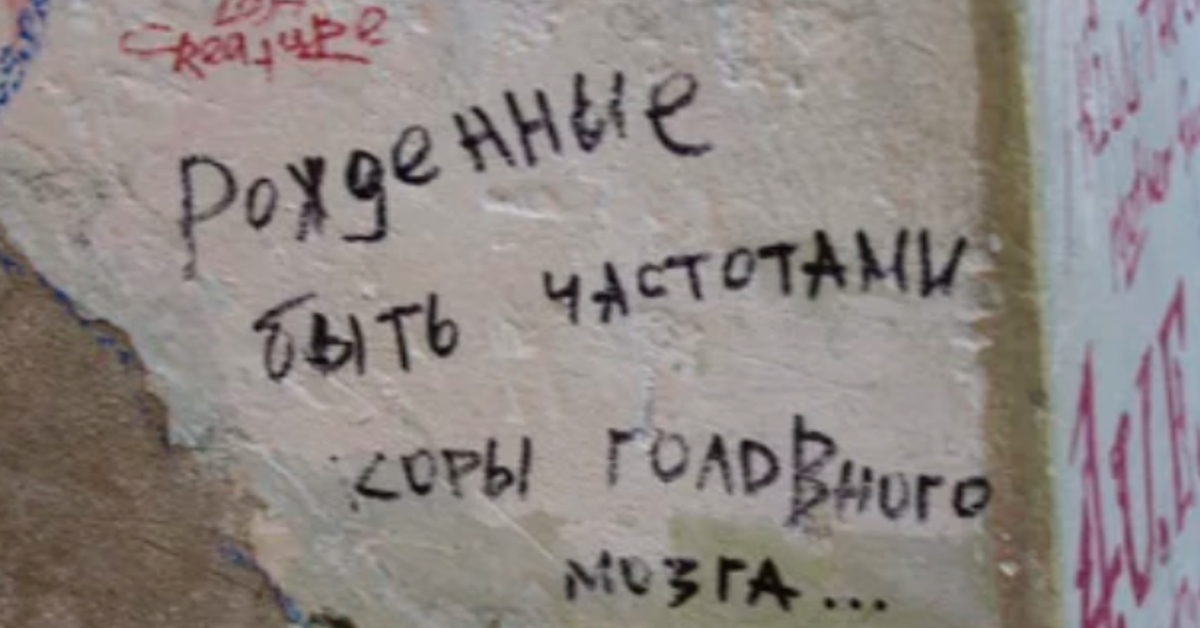 Creature
Рожденные
быть частотами
коры головного
мозга...